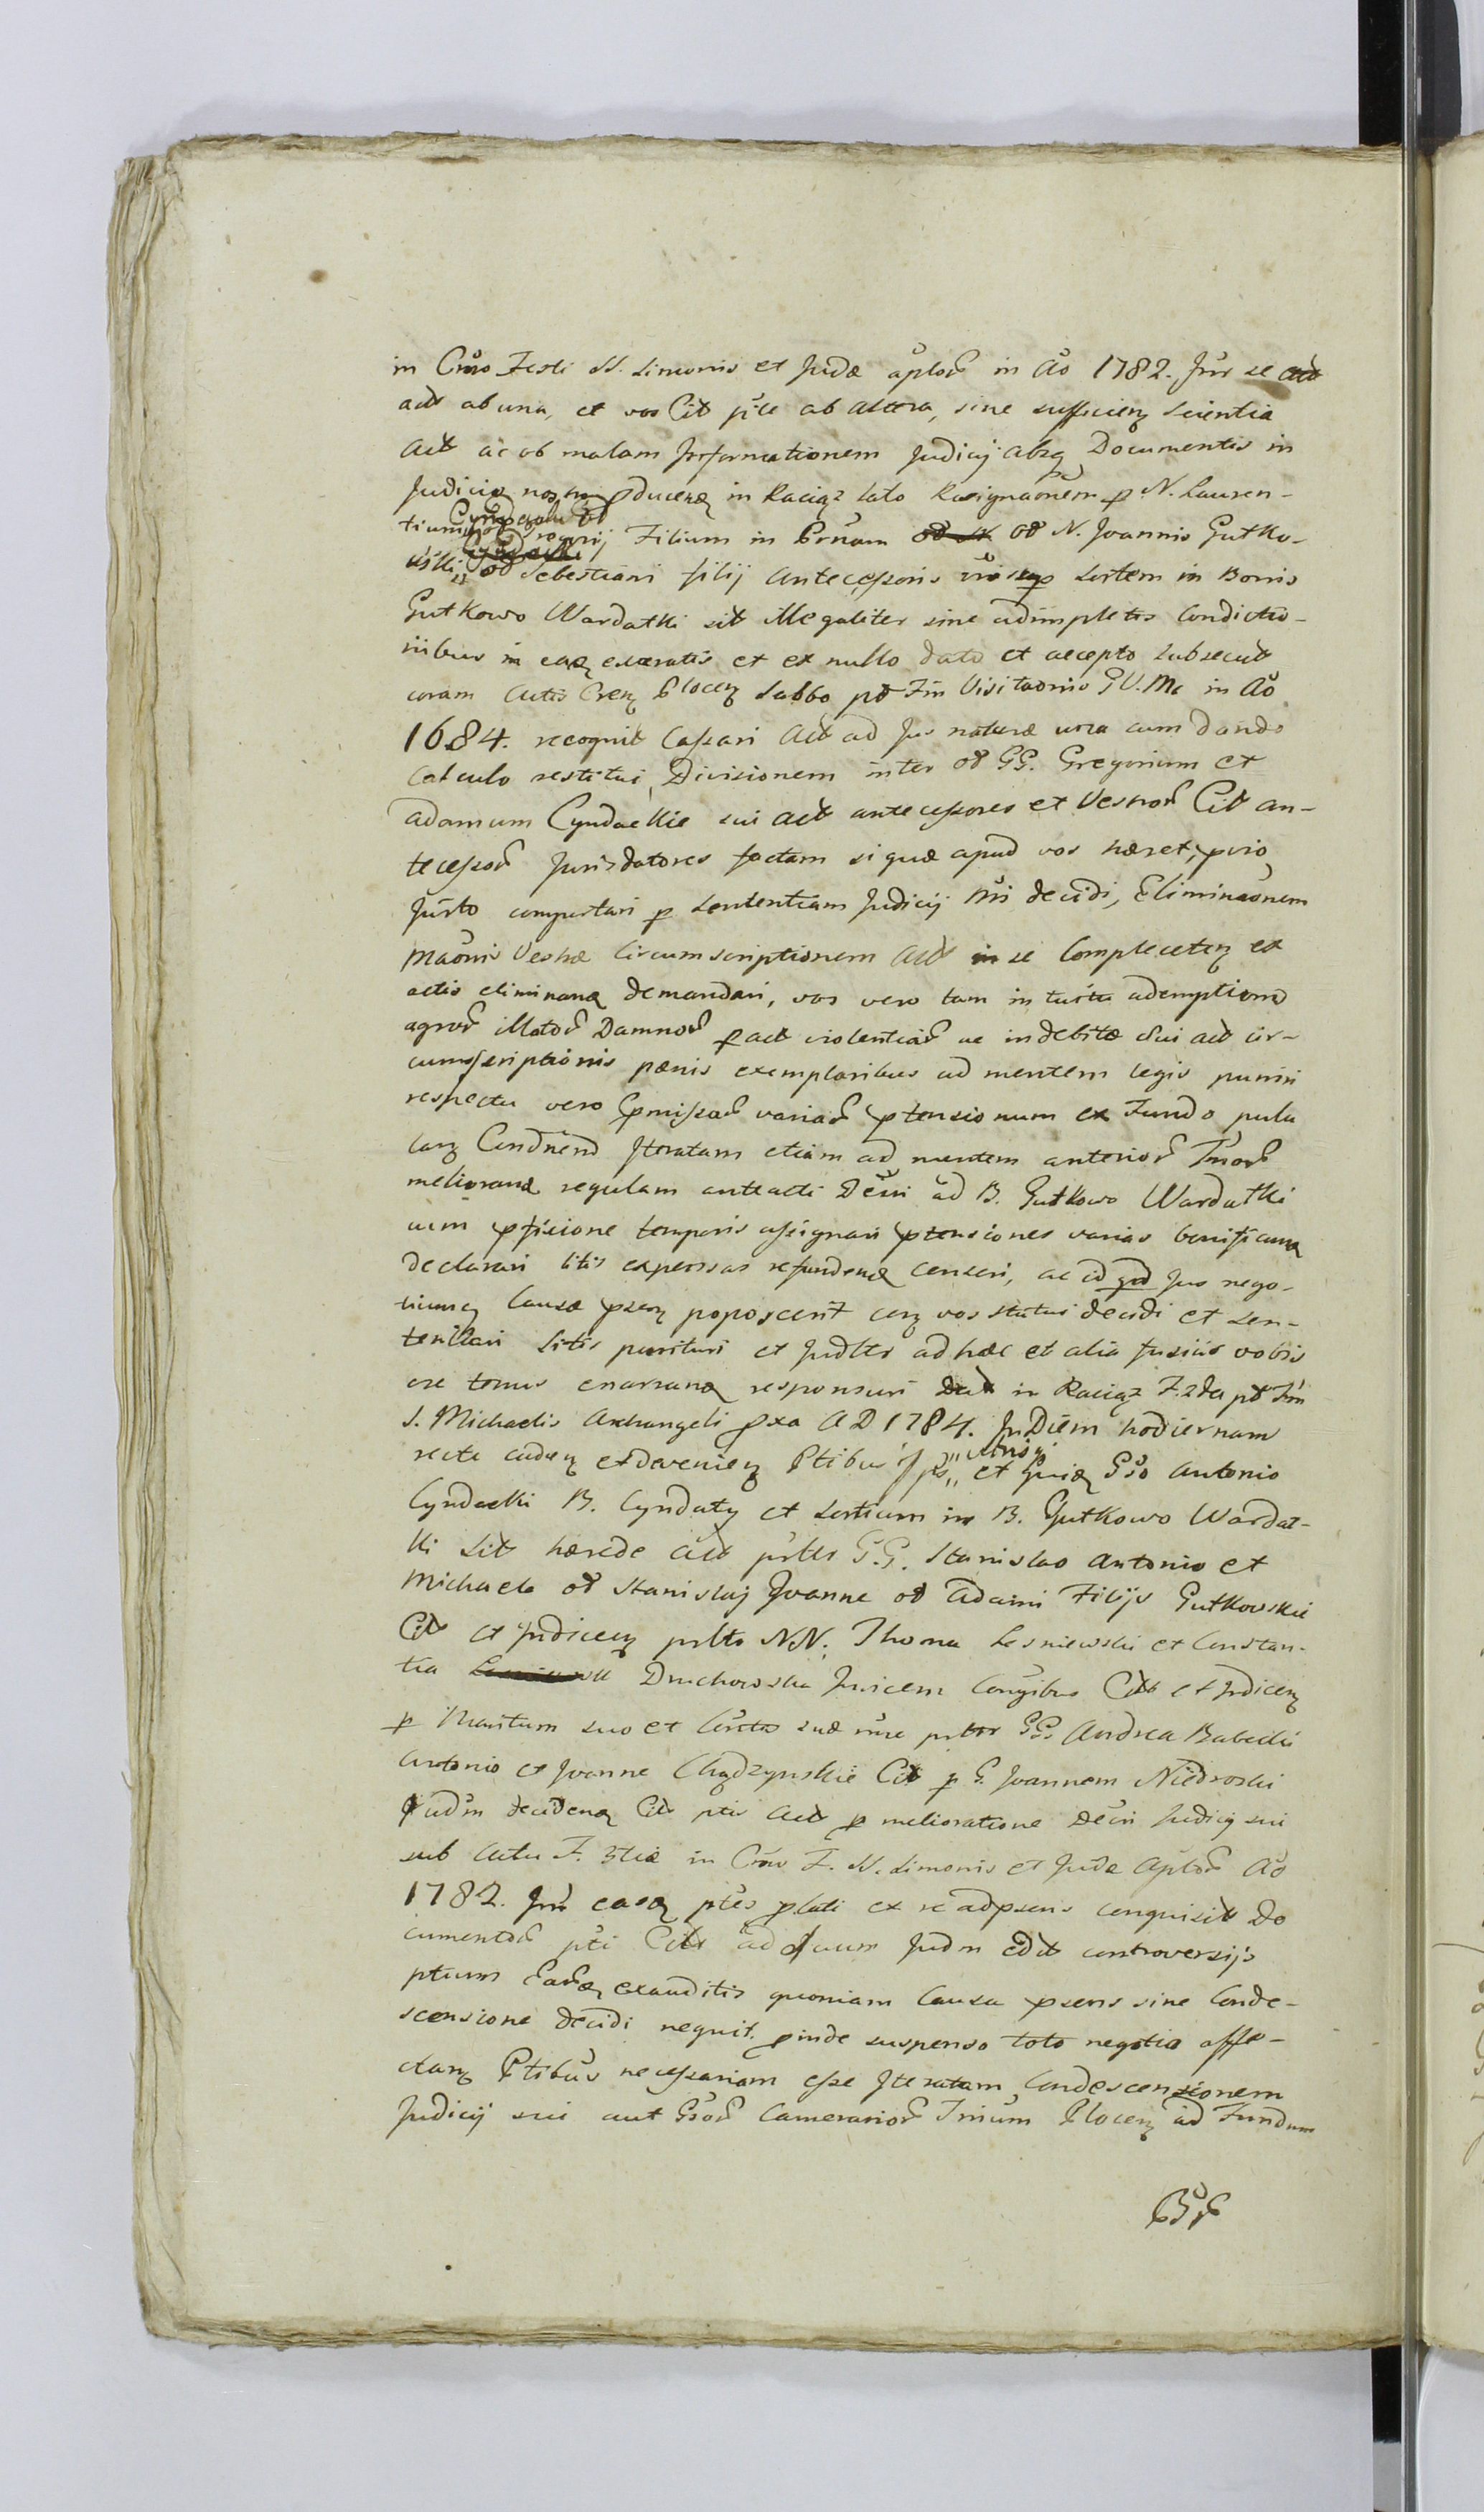 in Cro Festi SS. Simonis et Judæ aplor in Ao 1782. Jnr se
act ab una, et vos Cit ple ab altera, sine sufficien scientia
Act ac ob malam Jnformationem Judicij absq Documentis in
Judicio non producen in Raciąz lato Resignaonem p N. Lauren-
tium Cyndacki od Gregorij Filium in Prnam od N. Joannis Gutko-
wski od Sebestiani filij Antecessoris sup sortem in Bonis
Gutkowo Wardatki sit illegaliter sine adimpletis Condictio-
nibus in eaq exaratis et ex nullo dato et accepto subsecut
coram Actis Cren Plocen Sabbo pt Fm Visitaonis GV. Mæ in Ao
1684. recognit Cassari Act ad Jus naturæ una cum dando
Calculo restitui, Divisionem inter od GG. Gregorium et
Adamum Cyndackie sui act antecessores et Vestror Cit an-
tecessor Jurisdatores factam si quæ apud vos hæret, prvio
Jurto comportari p Sententiam Judicij Nri decidi, Eliminaonem
Maonis Vestræ Circumscriptionem Act in se Complecten ex
actis eliminan demandari, vos vero tam intuitu ademptiond
agror illator Damnor p act violentiar ac indebitæ Sui act cir-
cumscriptionis pænis exemplaribus ad mentem legis puniri
respectu vero pmissar variar ptensionum ex Fundo pula
can Condnend Jteratam etiam ad mentem anterior Jnor
melioran regulam anteacti Decri ad B. Gutkowo Wardatki
cum pfixione temporis assignari ptensiones varias bonifican
declarari litis expensas refunden censeri, ac id qd Jus nego-
tiumq Causæ psen poposcerit cerq vos statui decidi et sen-
tentiari Litis parituri et Judltr ad hæc et alia fusius vobis
ore tenus enarran responsuri Dat in Raciąz F. 2da pt Fm
S. Michaelis Archangeli pxa AD 1784. Jn Diem hodiernam
recte caden et deveniem Ptibus Jps „utrisq„ et quia Gso Antonio
Cyndacki B. Cyndaty et Sortium in B. Gutkowo Wardat-
ki sit hærede act prltr G.G. Stanislao Antonio et
Michaele od Stanislaj Joanne od Adami Filijs Gutkowskie
Cit et Jndicen prltr NN. Thoma Lesniewski et Constan-
tia Druchowska Jnvicem Conjibus Cit et Jndicen
p Maritum suo et Consts suæ nne prltr GG. Andrea Babecki
Antonio et Joanne Chądzynskie Cit p G. Joannem Niedroski
Judm deciden Cit ptis Act p melioratione Decri Judicij sui
sub Actu F. 3tiæ in Cro F. SS. Simonis et Judæ Aplor Ao
1782. Jnr easq ptes plati ex re adpsens conquisit Do
cumentor pti Citr ad suum Judm edit controversijs
ptium Earq exauditis quoniam Causa psens sine Conde-
scensione decidi nequit. pinde suspenso toto negotio affe-
ctan Ptibus necessariam esse Jteratam Condescensionem
Judicij sui aut Gsor Camerarior Jnium Plocen ad Fundum